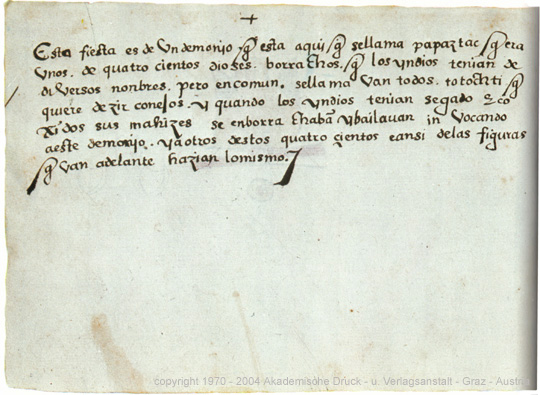 +
Esta fiesta es de Un demonjo q̃ esta aqui q̃ sellama papaztac q̃ era
Unos. de quatro cientos dioses. borrachos. q̃ los yndios tenian de
diversos nonbres. pero en comun. sellama van todos. totochti q̃
quiere dezir conejos. y quando los yndios tenian segado
sus mahizes se enborrachabã y bailavan in Vocando
aeste demonjo. ya otros destos quatro zientos e ansi delas figuras
q̃ van adelante hazian lomismo.
copyright 1970 - 2004 Akademische Druck - u. Verlagsanstalt - Graz - Austria